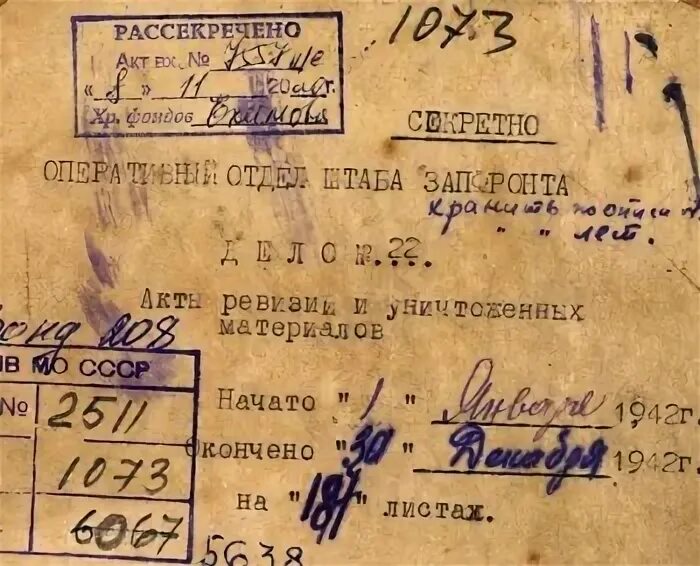 1073
РАССЕКРЕЧЕНО
Акт вх. № 757
"8" 11 20 г.
Хр. фондов
СЕКРЕТНО
ОПЕРАТИВНЫЙ ОТДЕЛ ШТАБА ЗАПФРОНТА
хранить
" " лет.
ДЕЛО №.22.
Акты ревизии и уничтоженных
материалов
Фонд 208
ИВ МО СССР
№ 2511
1073
6067
Начато "1" Января 1942г.
Окончено "30" Декабря 1942г.
на "187" листах.
5638